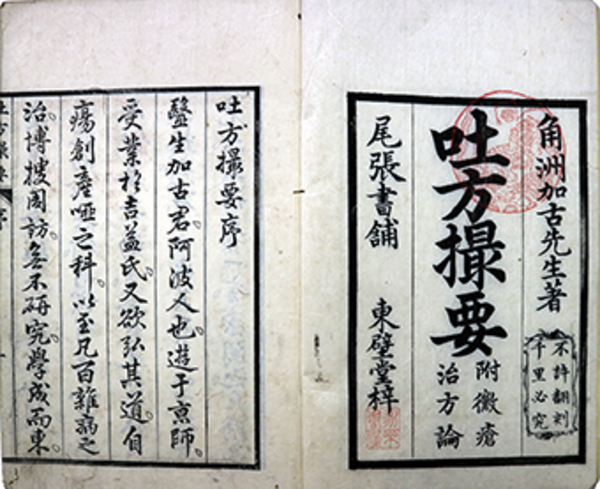 角洲加古先生著
不許翻刻
千里必究
吐方撮要
附黴瘡
治方論
尾張書舗 東壁堂梓
吐方撮要序
醫生加古君。阿波人也。遊于京師。
受業於吉益氏。又欲弘其道。自
瘍創産啞之科。以至凡百雜病之
治。博搜周訪。無不研究。學成而東